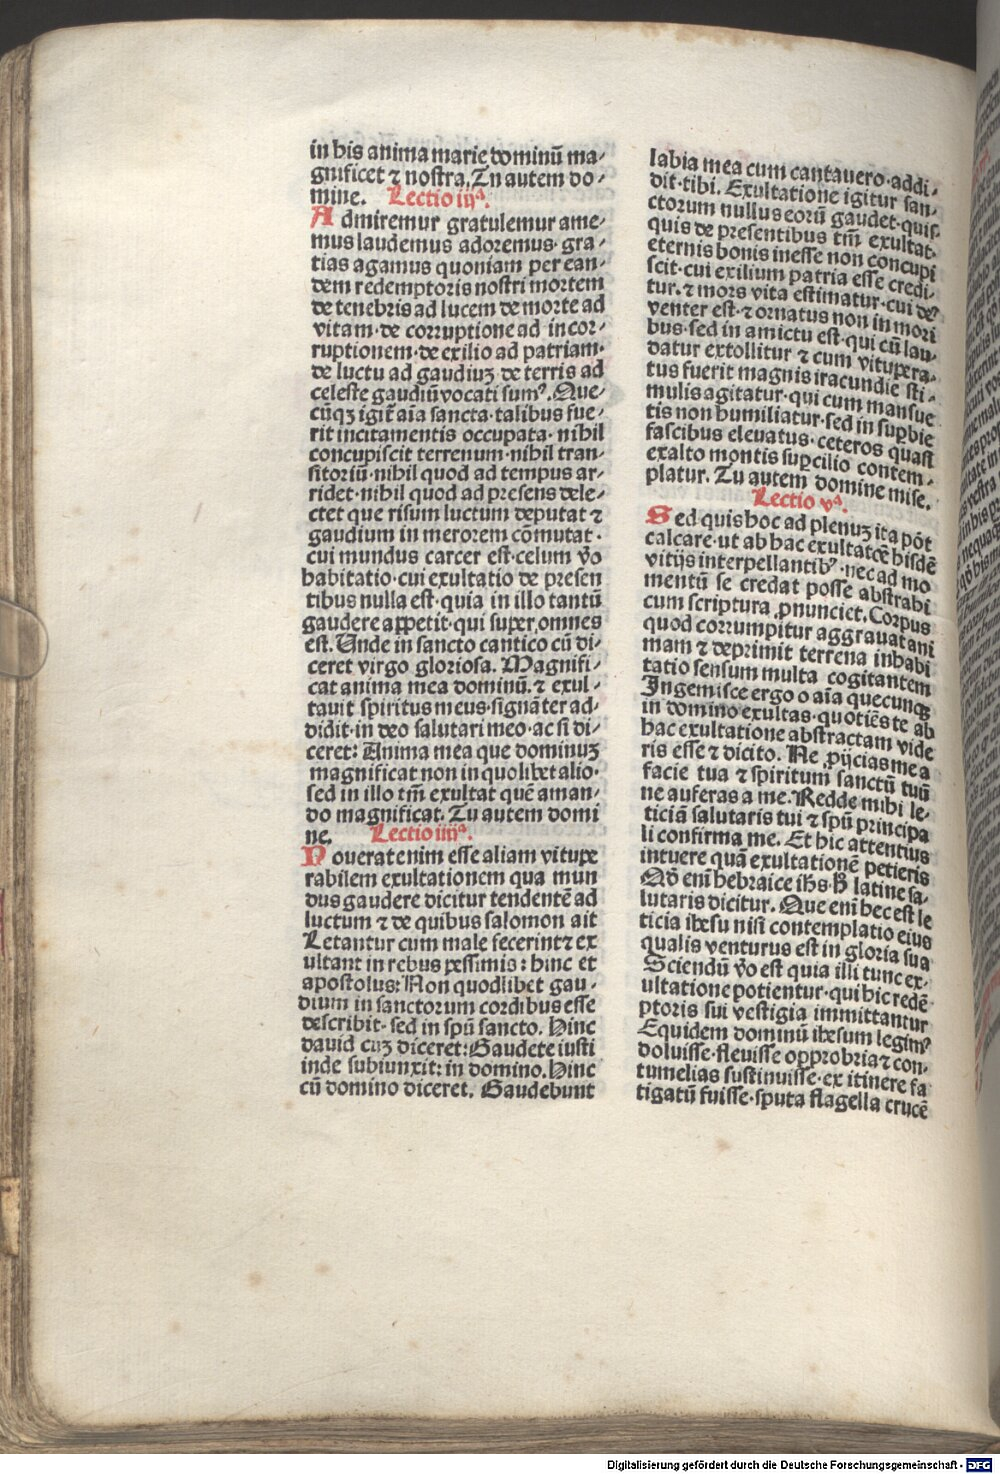 in his anima marie dominū ma-
gnificet ⁊ nostra. Tu autem do-
mine. Lectio iijª.
Admiremur gratulemur ame-
mus laudemus adoremus· gra-
tias agamus quoniam per ean-
dem redemptoris nostri mortem
de tenebris ad lucem de morte ad
vitam· de corruptione ad incor-
ruptionem· de exilio ad patriam·
de luctu ad gaudiuꝫ de terris ad
celeste gaudiū vocati sumꝰ. Que-
cūqꝫ igit̄ aīa sancta· talibus fue-
rit incitamentis occupata· nihil
concupiscit terrenum· nihil tran-
sitoriū· nihil quod ad tempus ar-
ridet· nihil quod ad presens dele-
ctet que risum luctum deputat ⁊
gaudium in merorem cōmutat·
cui mundus carcer est· celum v̄o
habitatio· cui exultatio de presen
tibus nulla est· quia in illo tantū
gaudere appetit· qui super omnes
est. Unde in sancto cantico cū di-
ceret virgo gloriosa. Magnifi-
cat anima mea dominū. ⁊ exul-
tauit spiritus meus· signāter ad-
didit· in deo salutari meo· ac si di-
ceret: Anima mea que dominuꝫ
magnificat non in quolibet alio·
sed in illo tm̄ exultat quē aman-
do magnificat. Tu autem domi
ne. Lectio iiijª.
Nouerat enim esse aliam vitupe
rabilem exultationem qua mun
dus gaudere dicitur tendentē ad
luctum ⁊ de quibus salomon ait
Letantur cum male fecerint ⁊ ex
ultant in rebus pessimis: hinc et
apostolus: Non quodlibet gau-
dium in sanctorum cordibus esse
describit· sed in spū sancto. Hinc
dauid cuꝫ diceret: Gaudete iusti
inde subiunxit: in domino. Hinc
cū domino diceret. Gaudebunt
labia mea cum cantauero· addi-
dit· tibi. Exultatione igitur san-
ctorum nullus eorū gaudet· quis-
quis de presentibus tm̄ exultat·
eternis bonis inesse non concupi
scit· cui exilium patria esse credi-
tur· ⁊ mors vita estimatur· cui deꝰ
venter est· ⁊ ornatus non in mori
bus· sed in amictu est· qui cū lau-
datur extollitur ⁊ cum vitupera-
tus fuerit magnis iracundie sti-
mulis agitatur· qui cum mansue
tis non humiliatur· sed in suꝑbie
fascibus eleuatus· ceteros quasi
exalto montis suꝑcilio contem-
platur. Tu autem domine mise.
Lectio vª.
Sed quis hoc ad plenuꝫ ita pōt
calcare· ut ab hac exultatōe hisdē
vitijs interpellantibꝰ· nec ad mo
mentū se credat posse abstrahi
cum scriptura ꝓnunciet. Corpus
quod corrumpitur aggrauat ani
mam ⁊ deprimit terrena inhabi
tatio sensum multa cogitantem
Ingemisce ergo o aīa quecunqꝫ
in domino exultas· quotiēs te ab
hac exultatione abstractam vide
ris esse ⁊ dicito. Ne ꝓijcias me a
facie tua ⁊ spiritum sanctū tuū
ne auferas a me. Redde mihi le-
ticiā salutaris tui ⁊ spū principa
li confirma me. Et hic attentius
intuere quā exultationē petieris
Qđ eni hebraice ihs· ħ latine sa-
lutaris dicitur. Que eni hec est le
ticia ihesu nisi contemplatio eius
qualis venturus est in gloria sua
Sciendū v̄o est quia illi tunc ex-
ultatione potientur· qui hic redē
ptoris sui vestigia immittantur
Equidem dominū ihesum legimꝰ
doluisse· fleuisse opprobria ⁊ con-
tumelias sustinuisse· ex itinere fa
tigatū fuisse· sputa flagella crucē
Digitalisierung gefördert durch die Deutsche Forschungsgemeinschaft - DFG